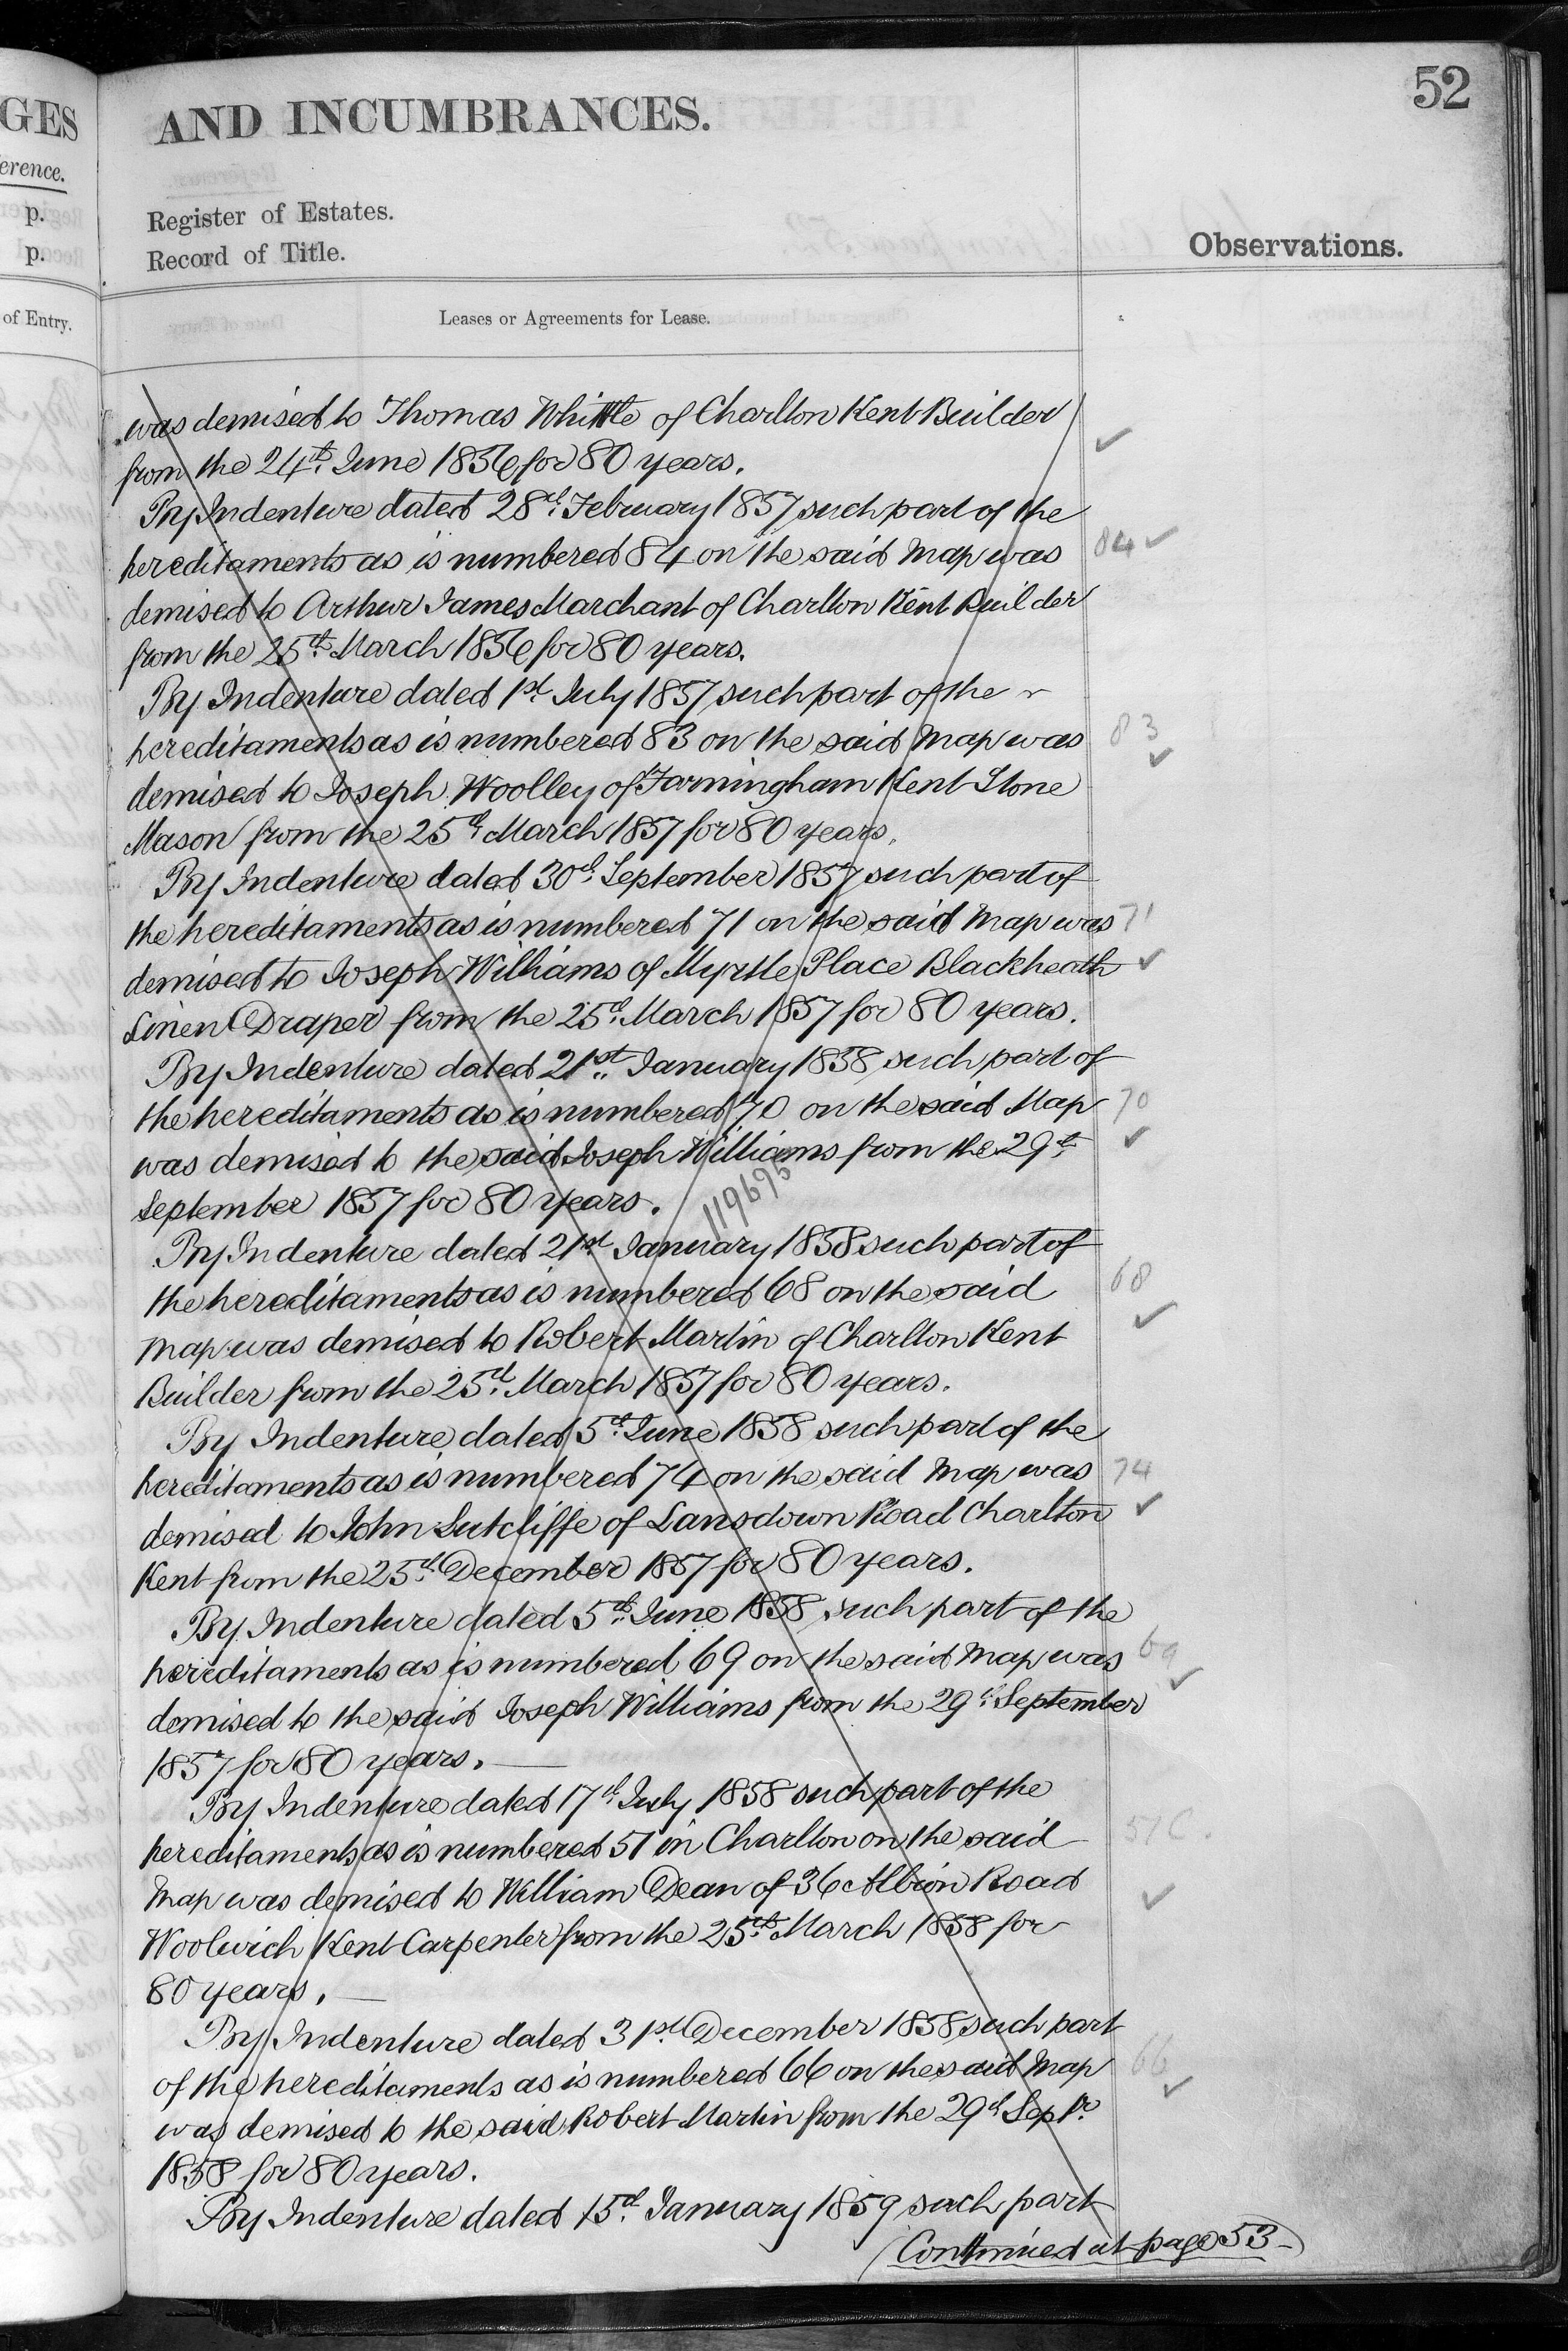 52
GES
AND INCUMBRANCES.
erence.
p.
Register of Estates.
p.
Record of Title.
Observations.
of Entry.
Leases or Agreements for Lease.
was demised to Thomas Whittle of Charlton Kent Builder
from the 24th. June 1856 for 80 years.
By Indenture dated 28th. February 1857 such part of the
hereditaments as is numbered 84 on the said Map was 84 ✓
demised to Arthur James Marchant of Charlton Kent Builder
from the 25th. March 1856 for 80 years.
By Indenture dated 1st. July 1857 such part of the
hereditaments as is numbered 83 on the said Map was 83
demised to Joseph Woolley of Farningham Kent Stone
Mason from the 25th. March 1857 for 80 years.
By Indenture dated 30th. September 1857 such part of
the hereditaments as is numbered 71 on the said Map was 71
demised to Joseph Williams of Myrtle Place Blackheath ✓
Linen Draper from the 25th. March 1857 for 80 years.
By Indenture dated 21st. January 1858 such part of
the hereditaments as is numbered 70 on the said Map 70
was demised to the said Joseph Williams from the 29th. ✓
September 1857 for 80 years.
119695
By Indenture dated 21st. January 1858 such part of
the hereditaments as is numbered 68 on the said 68
Map was demised to Robert Martin of Charlton Kent ✓
Builder from the 25th. March 1857 for 80 years.
By Indenture dated 5th. June 1858 such part of the
hereditaments as is numbered 74 on the said Map was 74
demised to John Sutcliffe of Lansdown Road Charlton ✓
Kent from the 25th. December 1857 for 80 years.
By Indenture dated 5th. June 1858 such part of the
hereditaments as is numbered 69 on the said Map was 69
demised to the said Joseph Williams from the 29th. September
1857 for 80 years.
By Indenture dated 17th. July 1858 such part of the
hereditaments as is numbered 51 in Charlton on the said 51 C.
Map was demised to William Dean of 36 Albion Road ✓
Woolwich Kent Carpenter from the 25th. March 1858 for
80 years.
By Indenture dated 31st. December 1858 such part
of the hereditaments as is numbered 66 on the said Map 66
was demised to the said Robert Martin from the 29th Septr.
1858 for 80 years.
By Indenture dated 15th. January 1859 such part
(Continued at page 53)